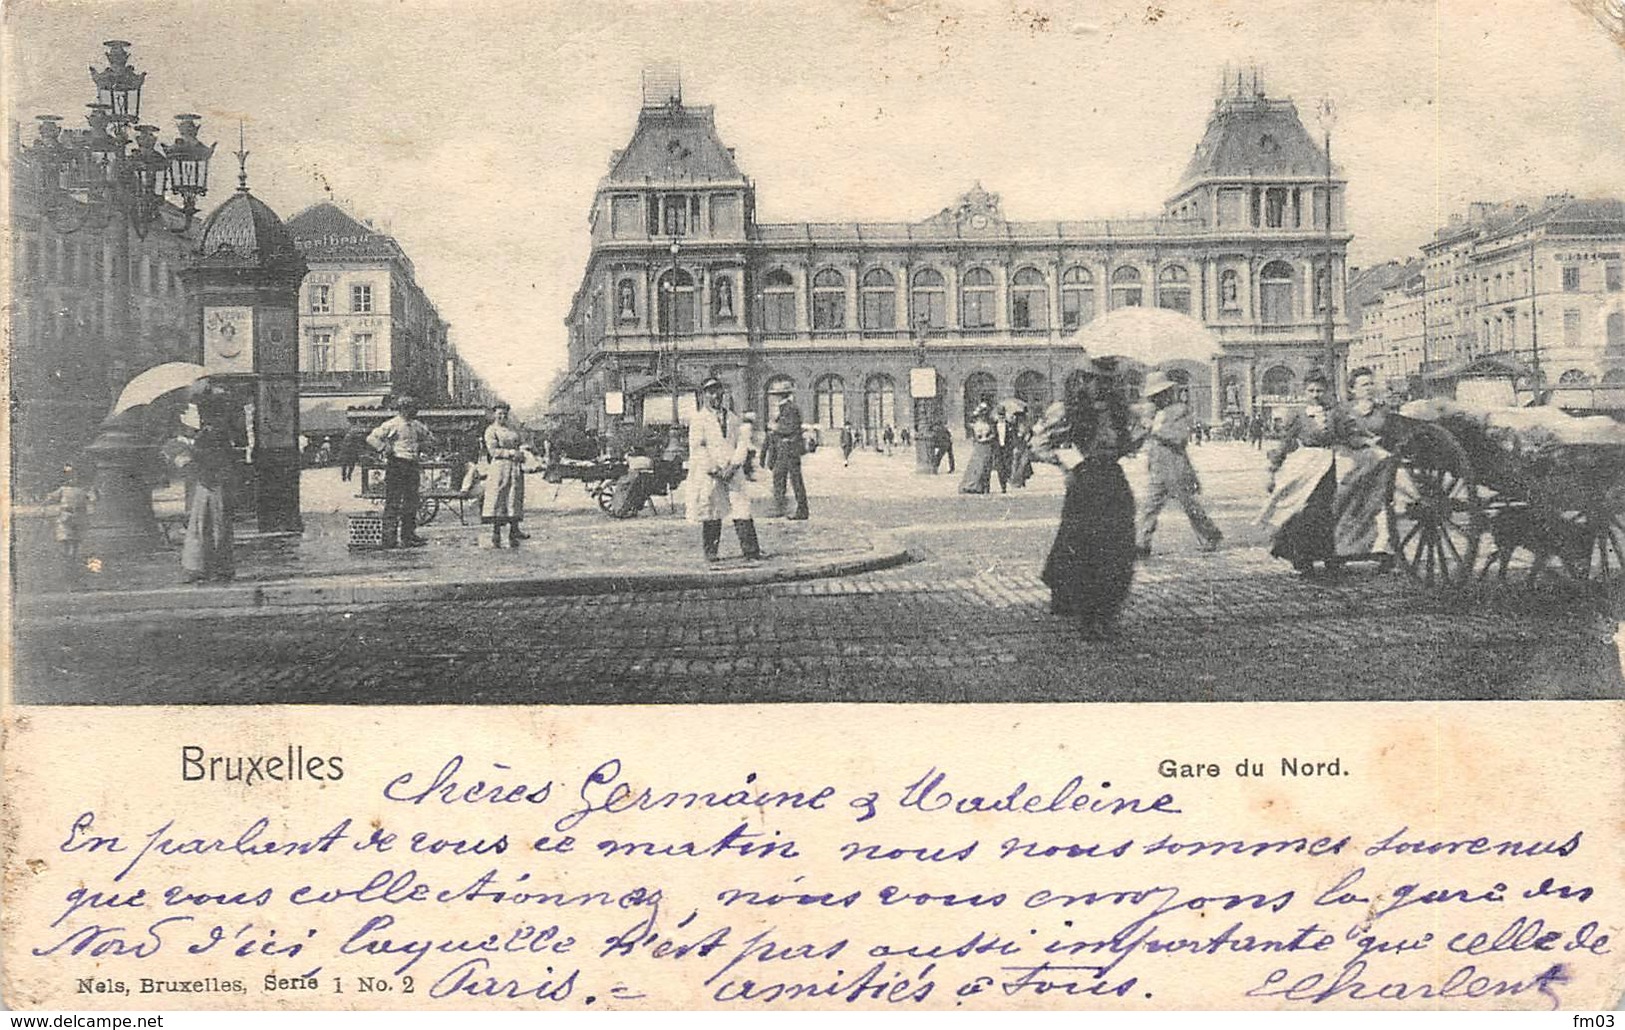 Bruxelles
Gare du Nord.
chères Germaine & Madeleine
En parlant de vous ce matin nous nous sommes souvenus
que vous collectionnez, nous vous envoyons la gare du
Nord d'ici laquelle n'est pas aussi importante que celle de
Paris. = amitiés à Tous.
Nels, Bruxelles, Serie 1 No. 2
www.delcampe.net
fm03